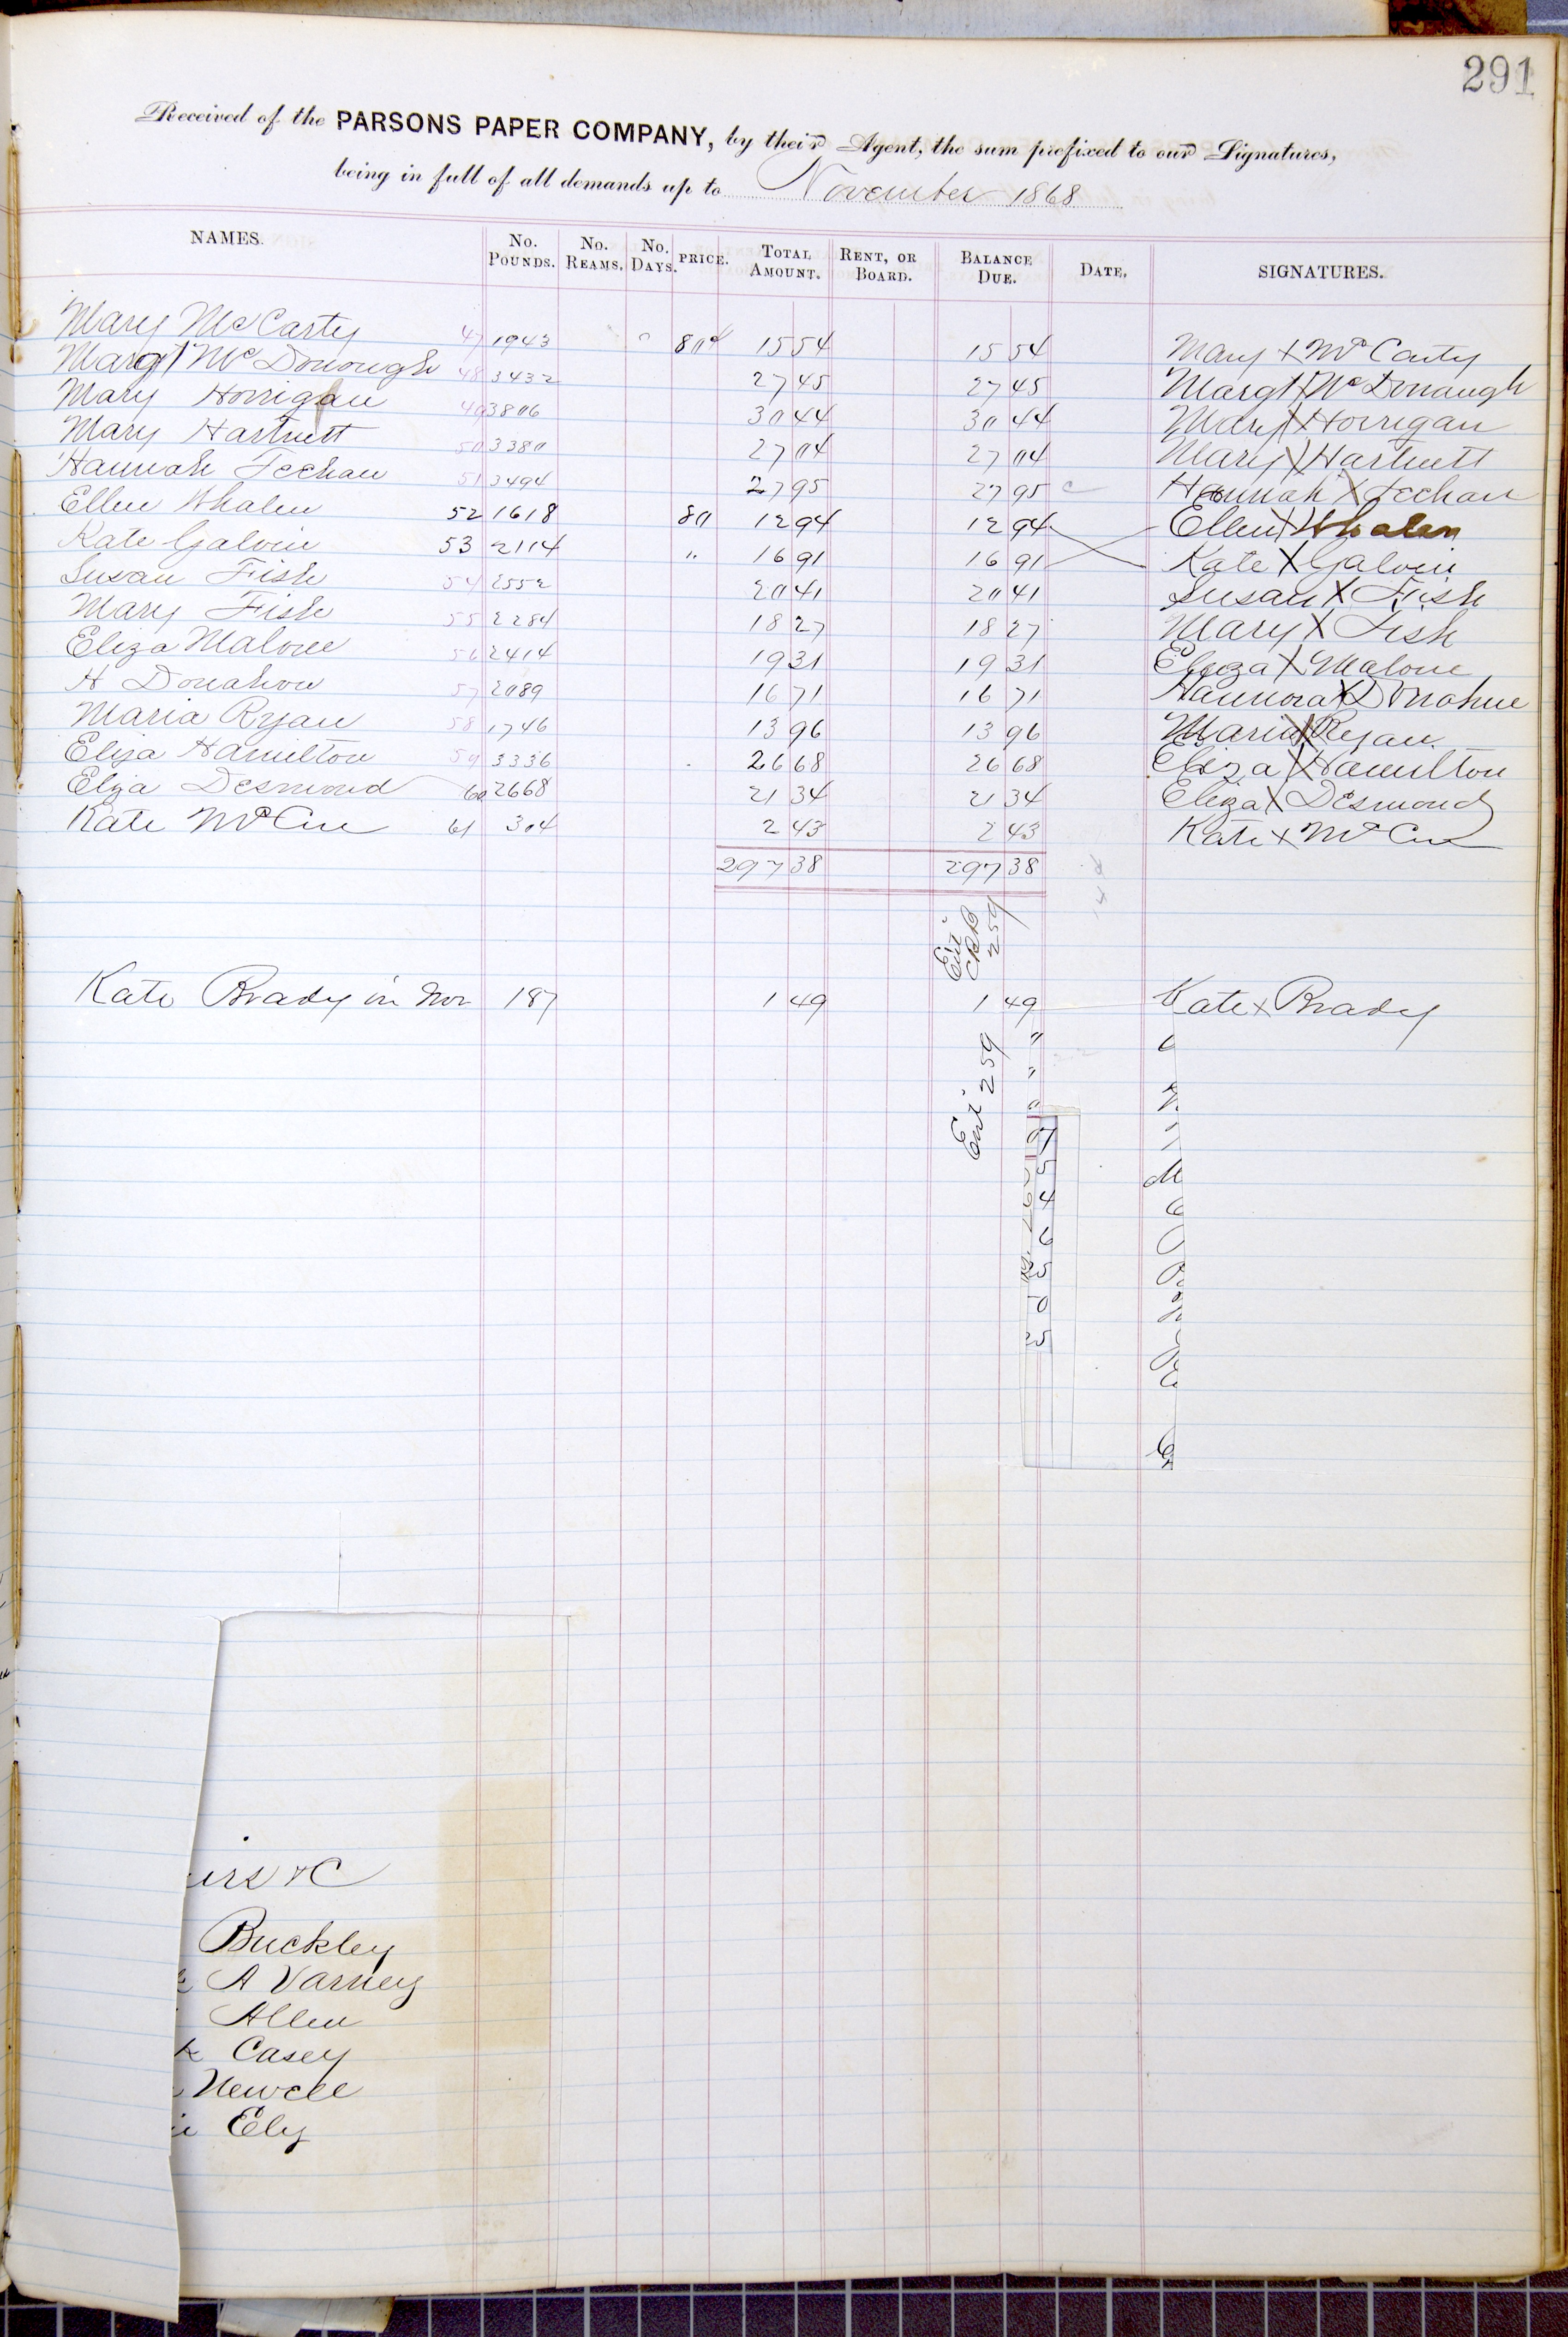 291
Received of the PARSONS PAPER COMPANY, by their Agent, the sum prefixed to our Signatures,
being in full of all demands up to November 1868
NAMES. No. POUNDS. No. REAMS. No. DAYS. PRICE. TOTAL AMOUNT. RENT, OR BOARD. BALANCE DUE. DATE. SIGNATURES.
Mary McCarty 47 1943 80c 15 54 15 54 Mary X McCarty
Margt McDonough 48 3432 27 45 27 45 Margt X McDonaugh
Mary Horrigan 49 3806 30 44 30 44 Mary X Horrigan
Mary Hartnett 50 3380 27 04 27 04 Mary X Hartnett
Hannah Feehan 51 3494 27 95 27 95 Hannah X Feehan
Ellen Whalen 52 1618 80 12 94 12 94 Ellen X Whalen
Kate Galvin 53 2114 " 16 91 16 91 Kate X Galvin
Susan Fish 54 2552 20 41 20 41 Susan X Fish
Mary Fish 55 2284 18 27 18 27 Mary X Fish
Eliza Malone 56 2414 19 31 19 31 Eliza X Malone
H Donahou 57 2089 16 71 16 71 Hannora X Donohue
Maria Ryan 58 1746 13 96 13 96 Maria X Ryan
Eliza Hamilton 59 3336 26 68 26 68 Eliza X Hamilton
Eliza Desmond 60 2668 21 34 21 34 Eliza X Desmond
Kate McCue 61 304 2 43 2 43 Kate X McCue
297 38 297 38
Ent CBB 259
Kate Brady in Nov 187 1 49 1 49 Kate X Brady
Ent 259
"
"
"
7
5
4
6
5
0
5
irs &C
Buckley
A Varney
Allen
k Casey
Newell
Ely